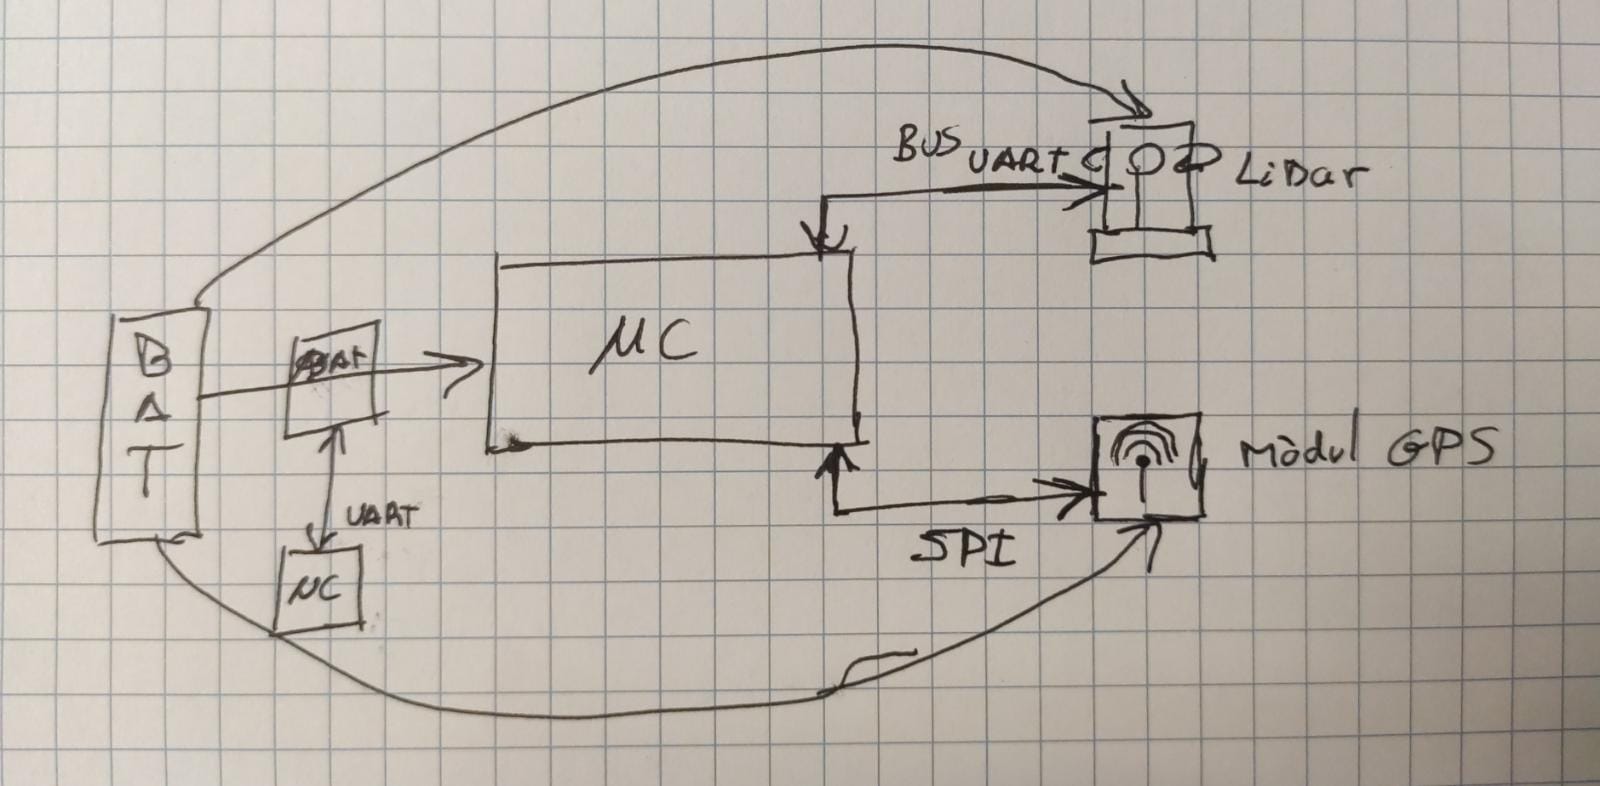 BUS UART
LiDar
B
A
T
BAT
µC
UART
µC
SPI
Mòdul GPS